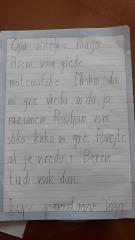 Pišem vam glede
matematike. Mislim, da
mi gre v redu in da jo
razumem. Pošiljam vam
sliko kako mi gre. Povejte
ali je v redu? Berem
tudi vsak dan.